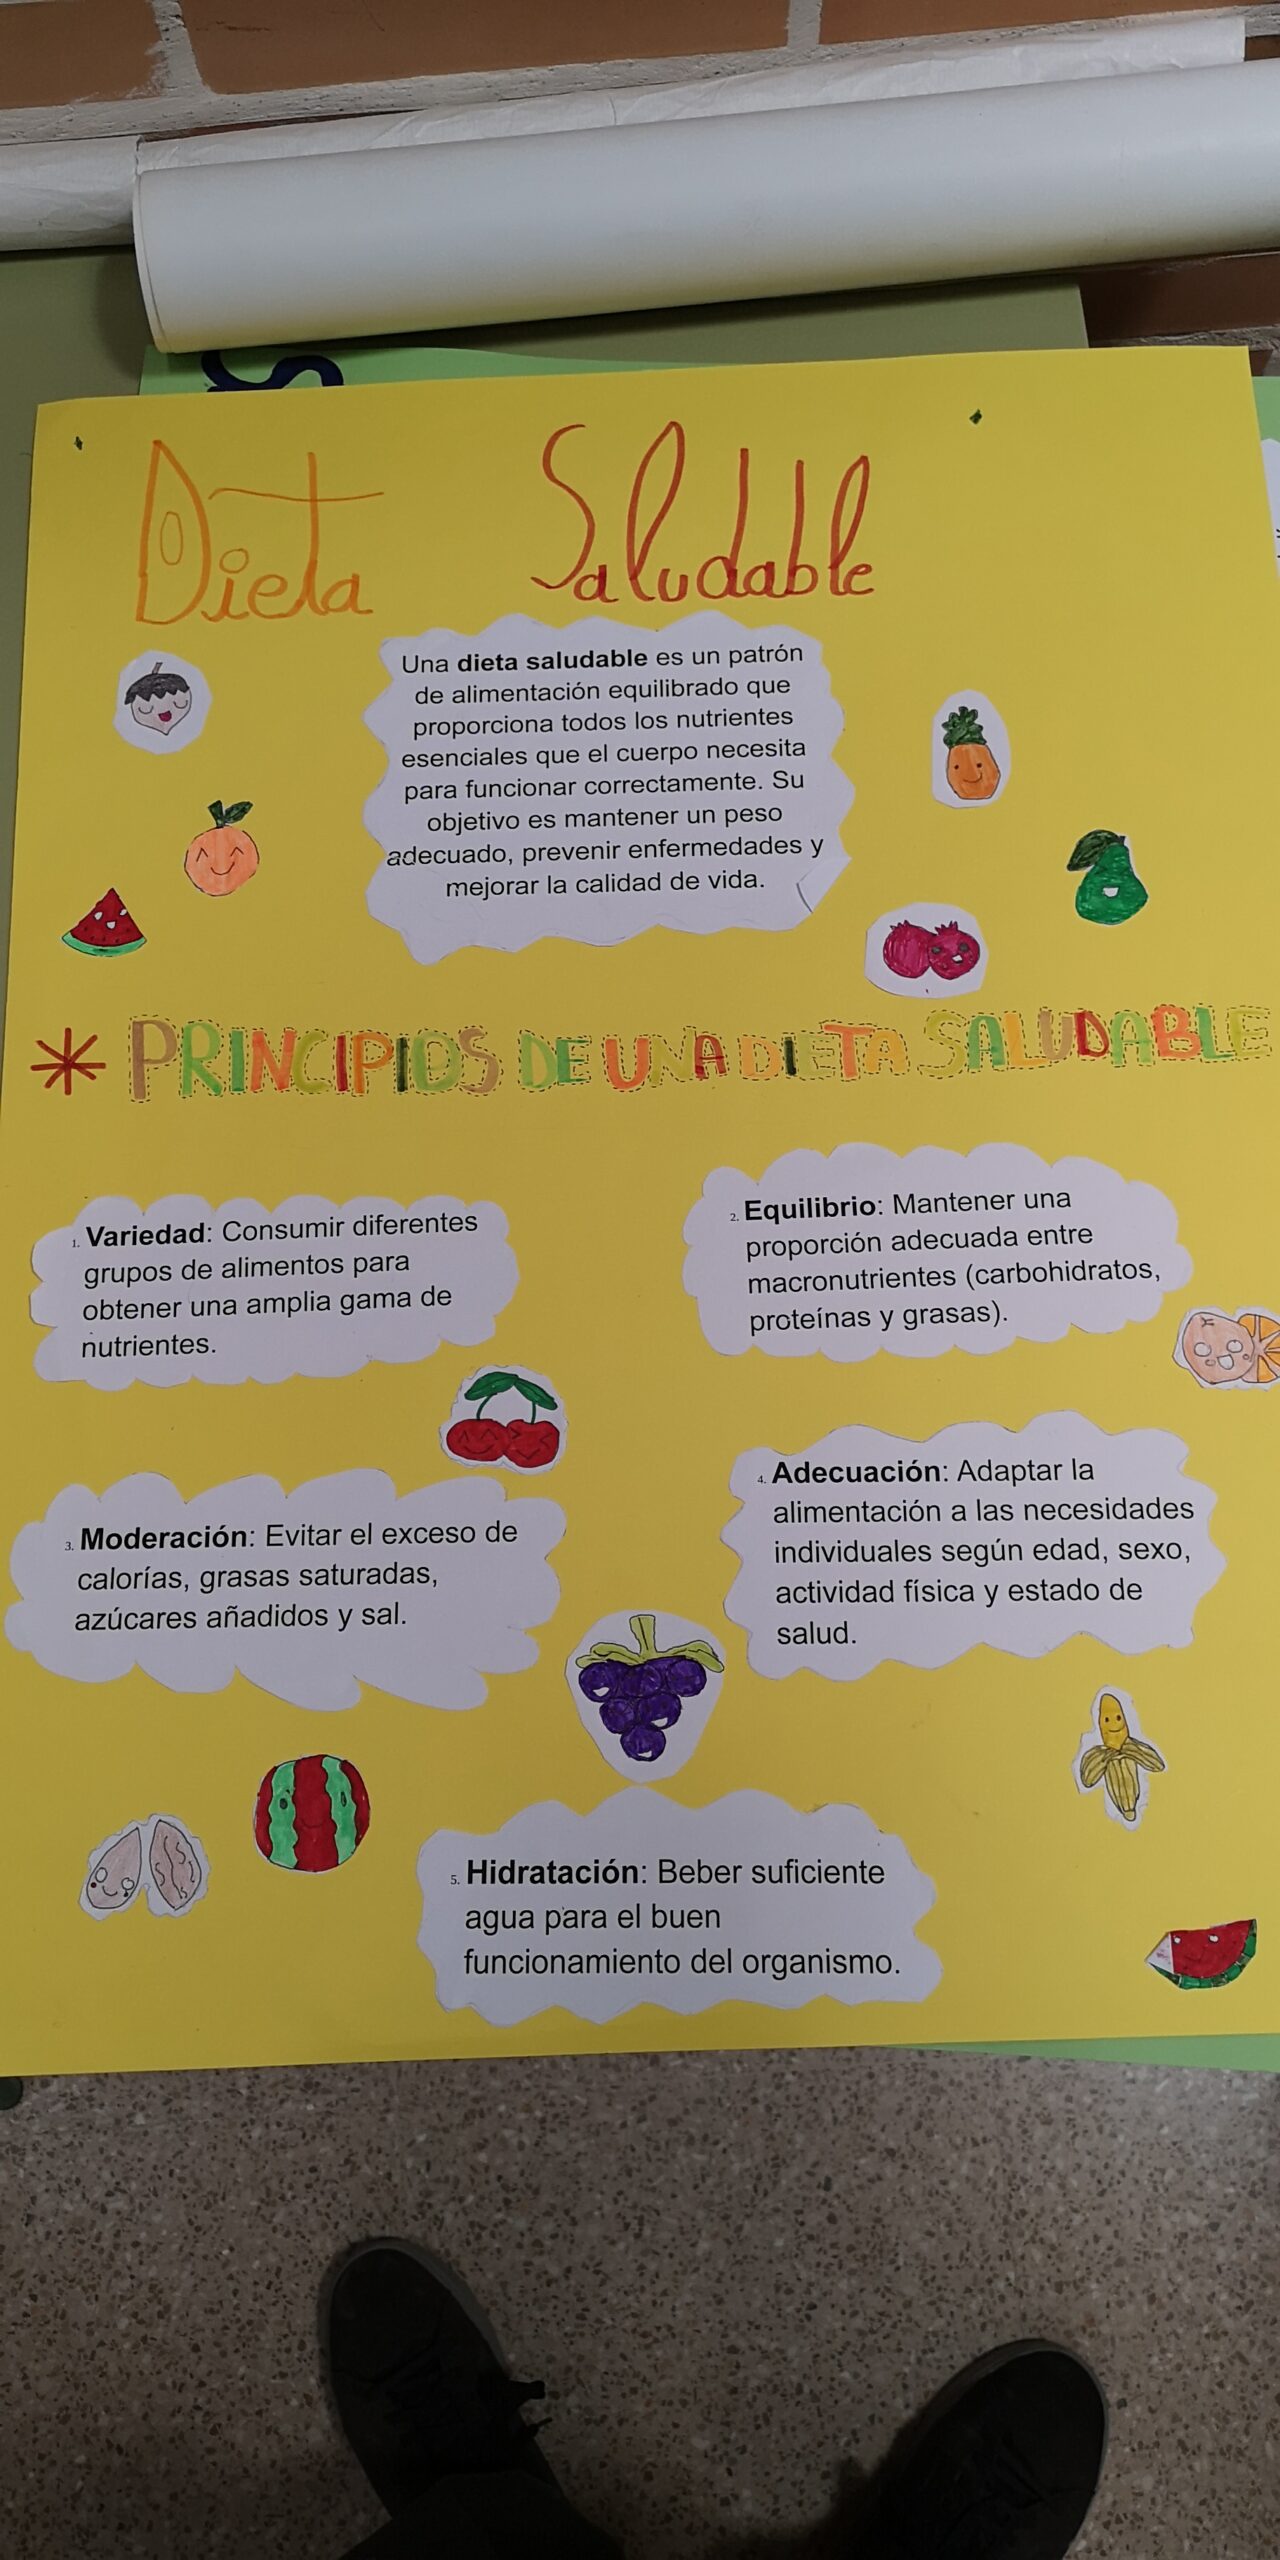 Dieta Saludable
Una dieta saludable es un patrón
de alimentación equilibrado que
proporciona todos los nutrientes
esenciales que el cuerpo necesita
para funcionar correctamente. Su
objetivo es mantener un peso
adecuado, prevenir enfermedades y
mejorar la calidad de vida.
* PRINCIPIOS DE UNA DIETA SALUDABLE
1. Variedad: Consumir diferentes
grupos de alimentos para
obtener una amplia gama de
nutrientes.
2. Equilibrio: Mantener una
proporción adecuada entre
macronutrientes (carbohidratos,
proteínas y grasas).
3. Moderación: Evitar el exceso de
calorías, grasas saturadas,
azúcares añadidos y sal.
4. Adecuación: Adaptar la
alimentación a las necesidades
individuales según edad, sexo,
actividad física y estado de
salud.
5. Hidratación: Beber suficiente
agua para el buen
funcionamiento del organismo.